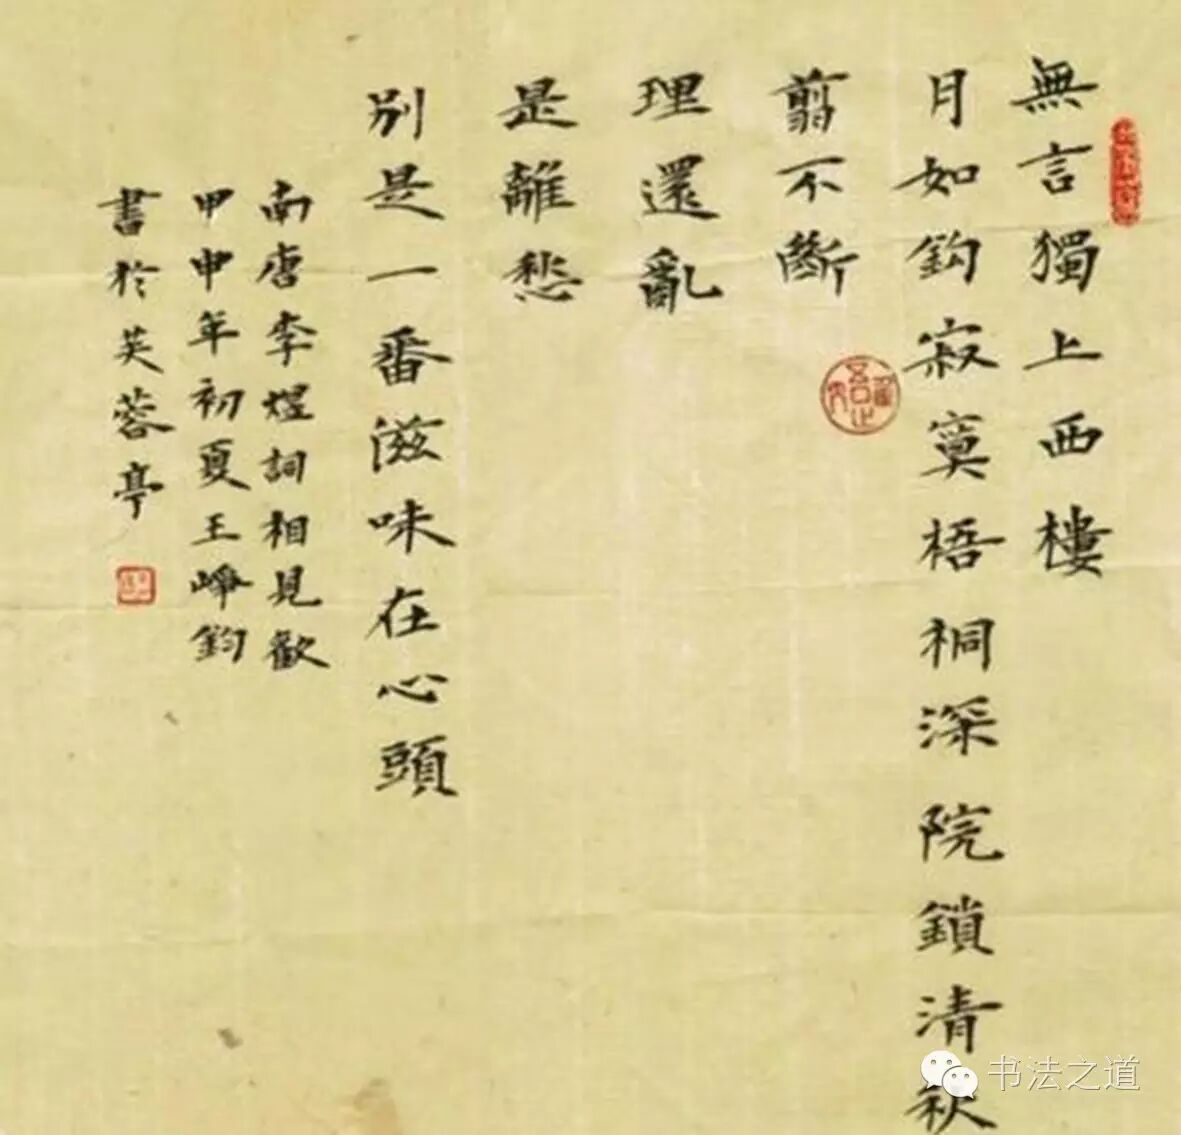 無言獨上西樓
月如鈎寂寞梧桐深院鎖清秋
翦不斷
理還亂
是離愁
別是一番滋味在心頭
南唐李煜詞相見歡
甲申年初夏王崢鈞
書於芙蓉亭
书法之道